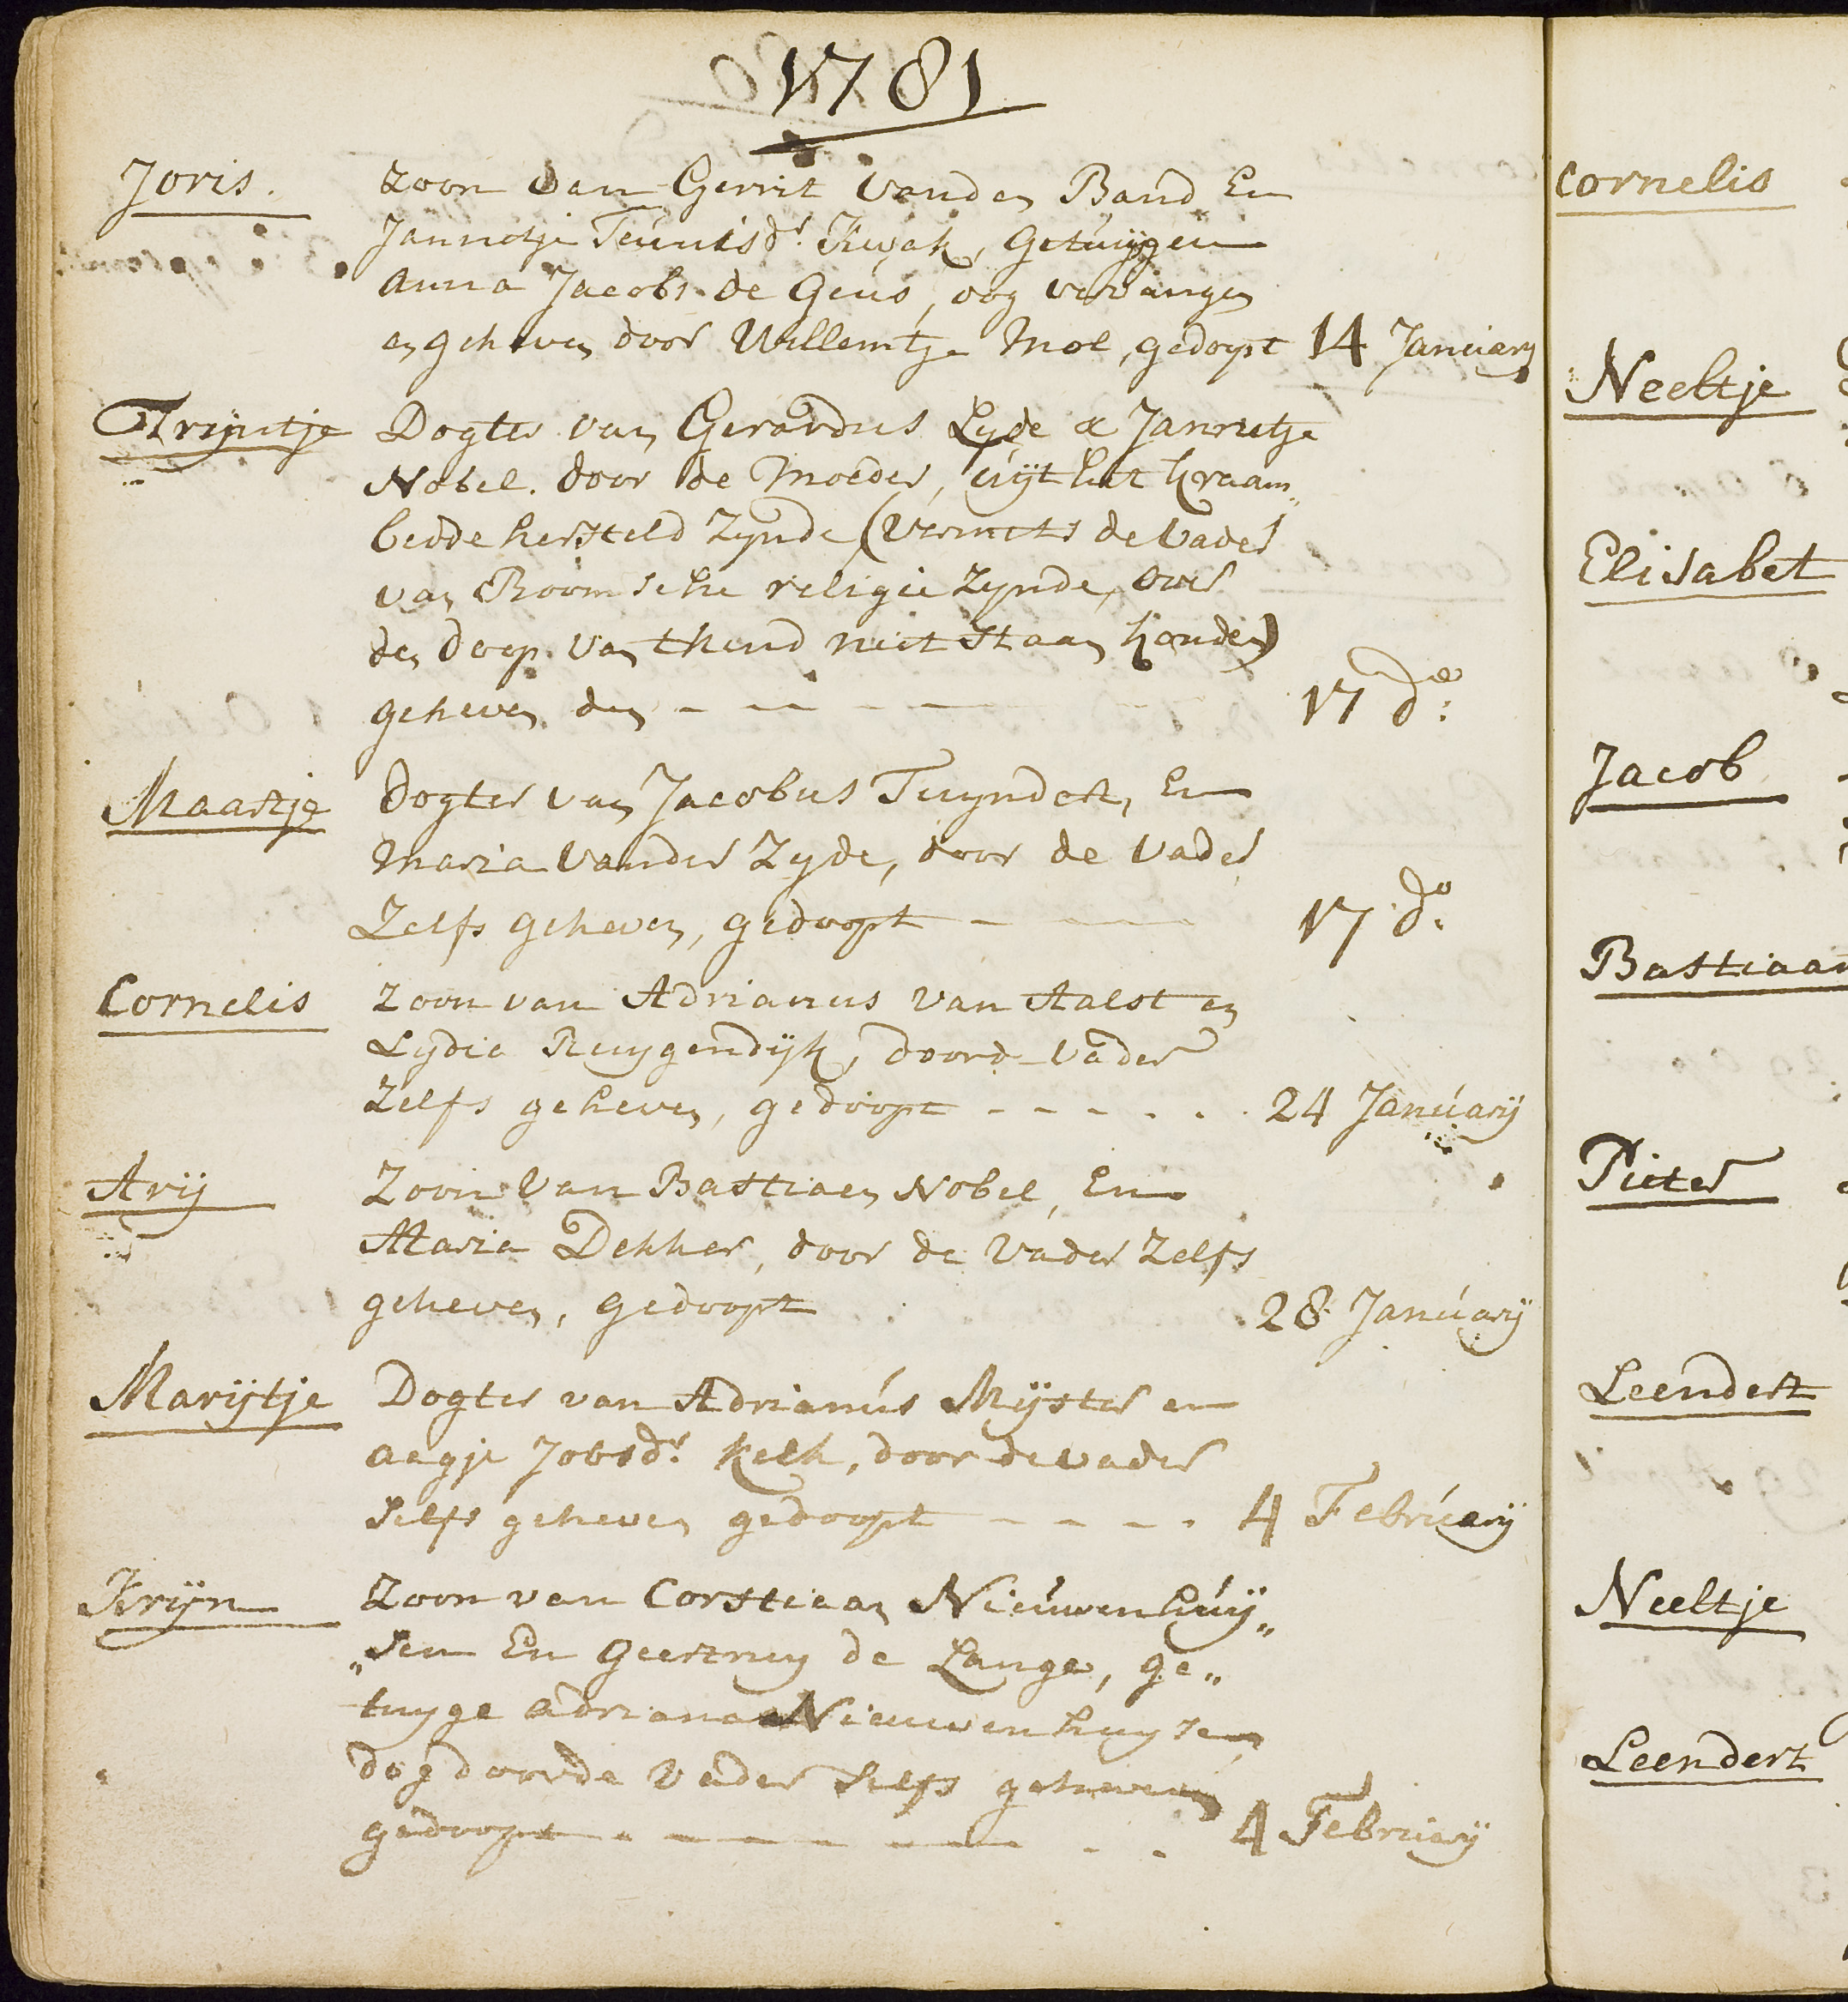 1781
Joris. Zoon van Gerrit van den Band En
Jannetje Teunisdr. Kwak, Getuijgen
Anna Jacobs de Geus, vervangen
en geheven door Willemtje Mol, gedoopt 14 January
Trijntje Dogter van Gerardus Lyde & Jannetje
Nobel. door de Moeder, uijt het kraam„
bedde hersteld Zynde (Vermits de Vader
van Roomsche religie Zynde, over
den doop van 't kind niet staan konde)
geheven den - - - - 17 do:
Maartje Dogter van Jacobus Tuynder, En
Maria vander Zyde, door de Vader
Zelfs geheven, gedoopt - - 17 do.
Cornelis Zoon van Adrianus van Aalst en
Lydia Ruygendijk, door d Vader
Zelfs geheven, gedoopt - - - - - 24 Januarij
Arij Zoon van Bastiaen Nobel, En
Maria Dekker, door de Vader Zelfs
geheven, gedoopt 28 Januarij
Marijtje Dogter van Adrianus Mijster en
Aegje Jobsdr. Kelk, door de vader
Selfs geheven gedoopt - - - - 4 Februarij
Krijn Zoon van Corstiaan Nieuwenhuij„
„sen En Geertruy de Lange, ge„
tuyge Adriana Nieuwenhuysen,
dog door de Vader Selfs geheven
gedoopt - - - - - - - 4 Februarij
Cornelis
Neeltje
Elisabet
Jacob
Bastiaan
Pieter
Leendert
Neeltje
Leendert